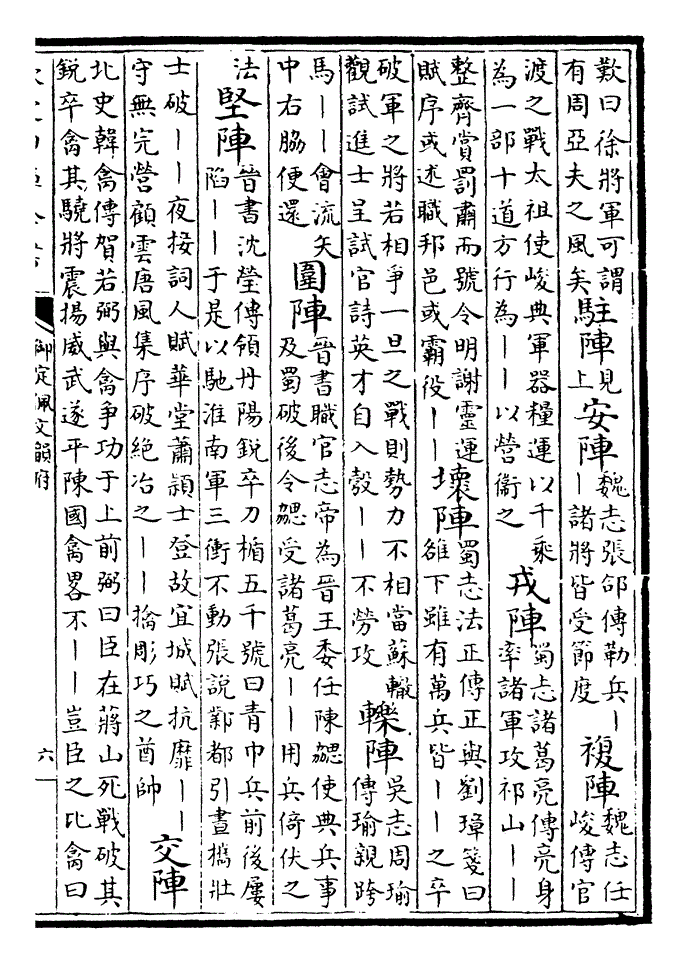 歎曰徐將軍可謂
有周亞夫之風矣
駐陣
見
上
安陣
魏志張郃傳勒兵丨
丨諸將皆受節度
複陣
魏志任
峻傳官
渡之戰太祖使峻典軍器糧運以千乘
為一部十道方行為丨丨以營衞之
戎陣
蜀志諸葛亮傳亮身
率諸軍攻祁山丨丨
整齊賞罰肅而號令明謝靈運
賦序或述職邦邑或霸役丨丨
壞陣
蜀志法正傳正與劉璋箋曰
雒下雖有萬兵皆丨丨之卒
破軍之將若相爭一旦之戰則勢力不相當蘇轍
觀試進士呈試官詩英才自入彀丨丨不勞攻
轢陣
吳志周瑜
傳瑜親跨
馬丨丨會流矢
中右脇便還
圍陣
晉書職官志帝為晉王委任陳勰使典兵事
及蜀破後令勰受諸葛亮丨丨用兵倚伏之
法
堅陣
晉書沈瑩傳領丹陽銳卒刀楯五千號曰青巾兵前後屢
陷丨丨于是以馳淮南軍三衝不動張說鄴都引晝攜壯
士破丨丨夜接詞人賦華堂蕭頴士登故宜城賦抗靡丨丨
守無完營顧雲唐風集序破絕冶之丨丨擒彫巧之酋帥
交陣
北史韓禽傳賀若弼與禽爭功于上前弼曰臣在蔣山死戰破其
銳卒禽其驍將震揚威武遂平陳國禽畧不丨丨豈臣之比禽曰
御定佩文韻府
六